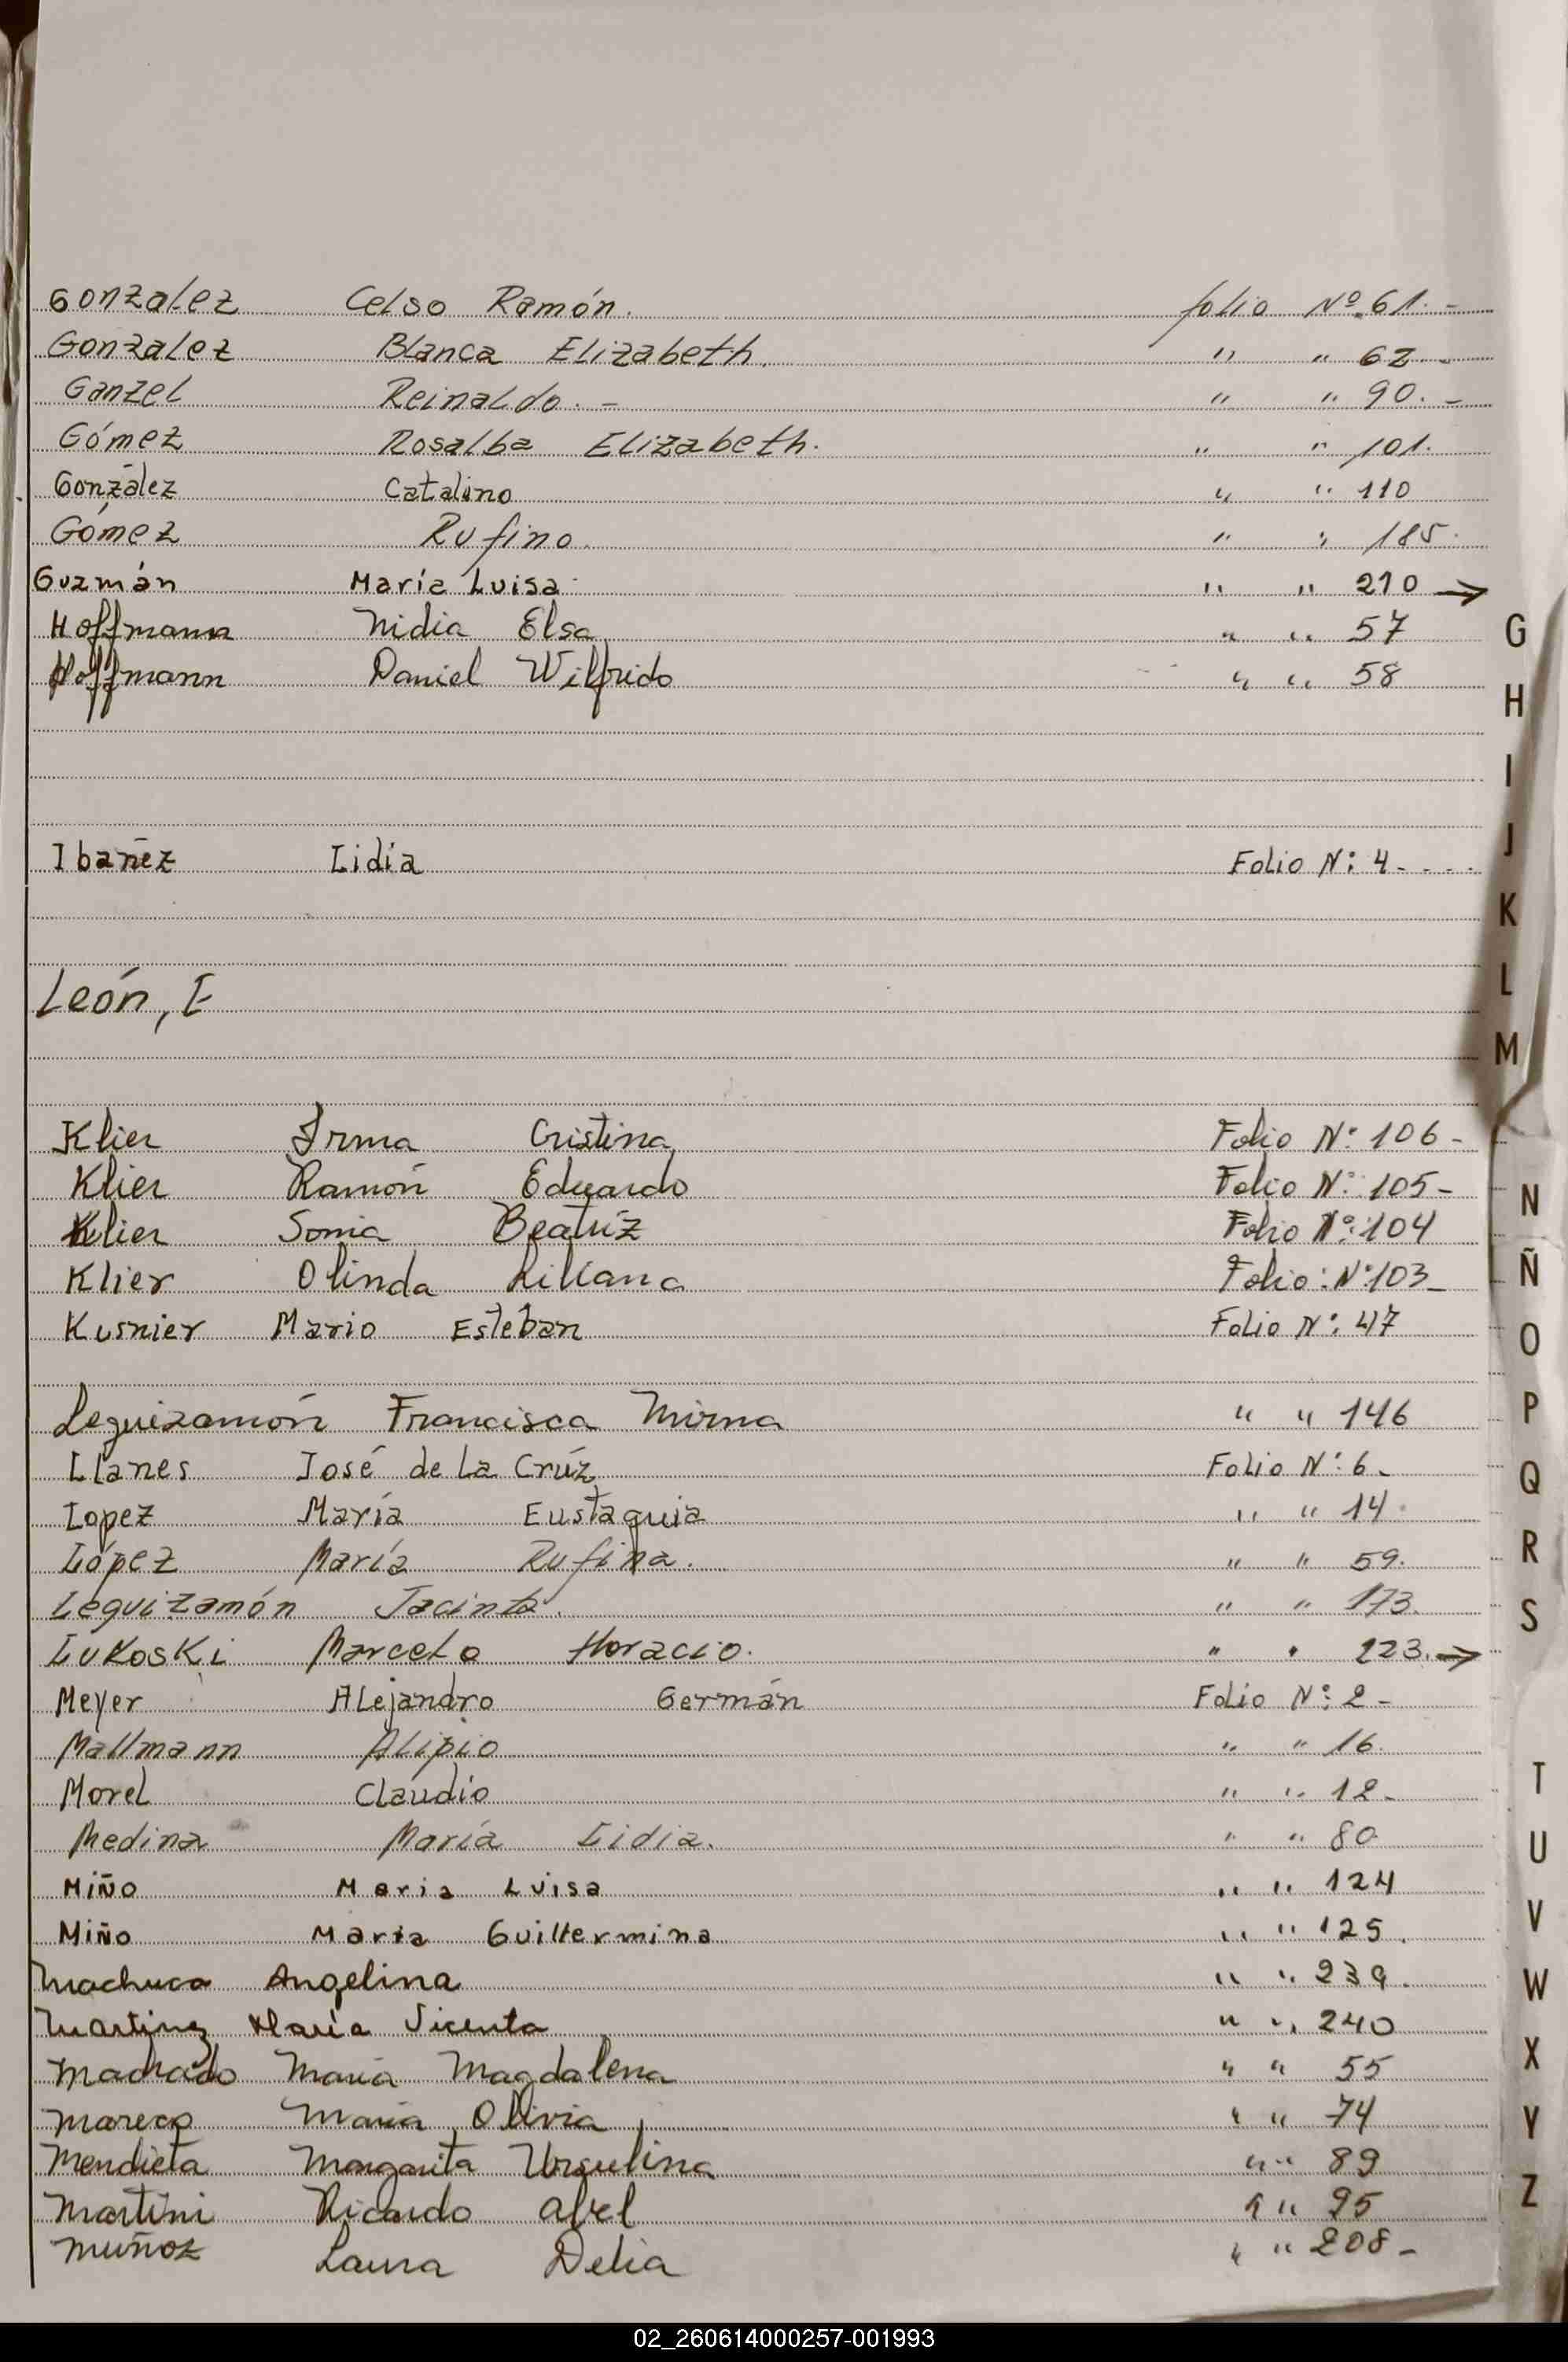 Gonzalez Celso Ramón. folio Nº 61. -
Gonzalez Blanca Elizabeth. " " 62. -
Ganzel Reinaldo. - " " 90. -
Gómez Rosalba Elizabeth. " " 101.
González Catalino " " 110
Gómez Rufino. " " 185.
Guzmán María Luisa " " 210 →
Hoffmann Nidia Elsa " " 57
Hoffmann Daniel Wilfrido " " 58
Ibañez Lidia Folio N: 4 - . . .
León, E
Klier Irma Cristina Folio Nº 106 -
Klier Ramón Eduardo Folio Nº 105 -
Klier Sonia Beatríz Folio Nº 104
Klier Olinda Liliana Folio: Nº 103 -
Kusnier Mario Esteban Folio N: 47
Leguizamón Francisca Mirna " " 146
Llanes José de La Crúz Folio Nº 6 -
Lopez María Eustaquia " " 14.
López María Rufina. " " 59.
Leguizamón Jacinta. " " 173.
Lukoski Marcelo Horacio. " " 223. →
Meyer Alejandro Germán Folio N: 2 -
Mallmann Alipio " " 16.
Morel Claudio " " 12 -
Medina María Lidia. " " 80
Miño Maria Luisa " " 124
Miño Maria Guillermina " " 125.
Machuca Angelina " " 239.
Martinez María Vicenta " " 240
Machado María Magdalena " " 55
Mareco María Olivia " " 74
Mendieta Margarita Ursulina " " 89
Martini Ricardo Abel " " 95
Muñoz Laura Delia " " 208 -
G
H
I
J
K
L
M
N
Ñ
O
P
Q
R
S
T
U
V
W
X
Y
Z
02_260614000257-001993